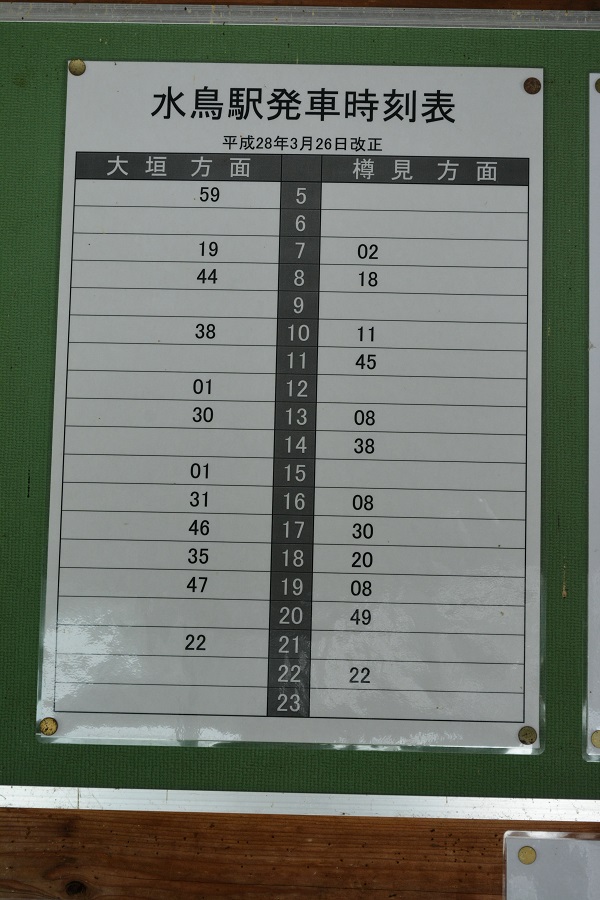 水鳥駅発車時刻表
平成28年3月26日改正
大垣方面 樽見方面
59 5
6
19 7 02
44 8 18
9
38 10 11
11 45
01 12
30 13 08
14 38
01 15
31 16 08
46 17 30
35 18 20
47 19 08
20 49
22 21
22 22
23